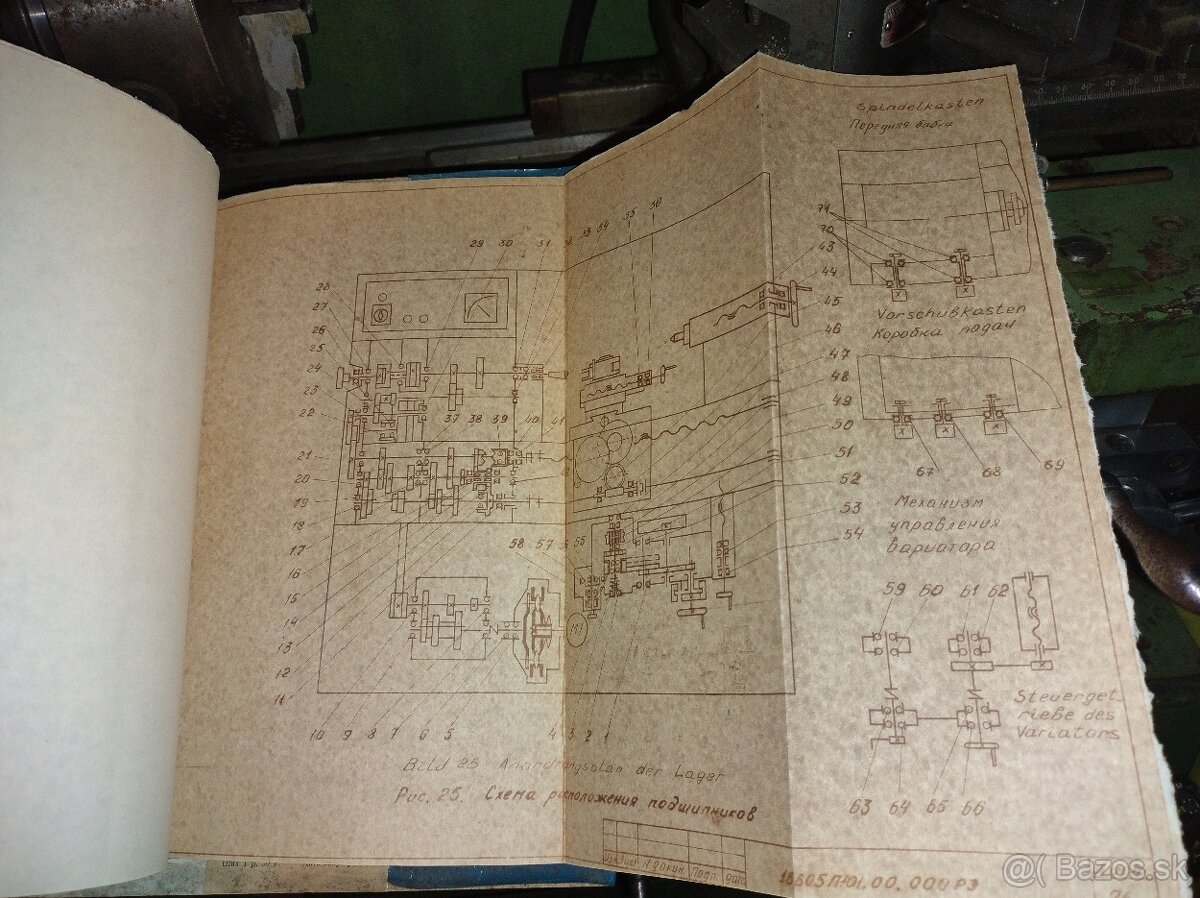 Spindelkasten
Передняя бабка
74
70
43
44
45
46
47
48
49
50
51
52
53
54
29 30 31 32 33 34 35 36
28
27
26
25
24
23
22
21
20
19
18
17
16
15
14
13
12
11
37 38 39 40 41
58 57 55
10 9 8 7 6 5 4 3 2 1
Vorschußkasten
Коробка подач
67 68 69
Механизм
управления
вариатора
59 60 61 62
63 64 65 66
Steuerget-
rieße des
Variators
Bild 25 Anordnungsplan der Lager
Рис. 25. Схема расположения подшипников
Подп.
16Б05П.01.00.000РЭ
@( Bazos.sk